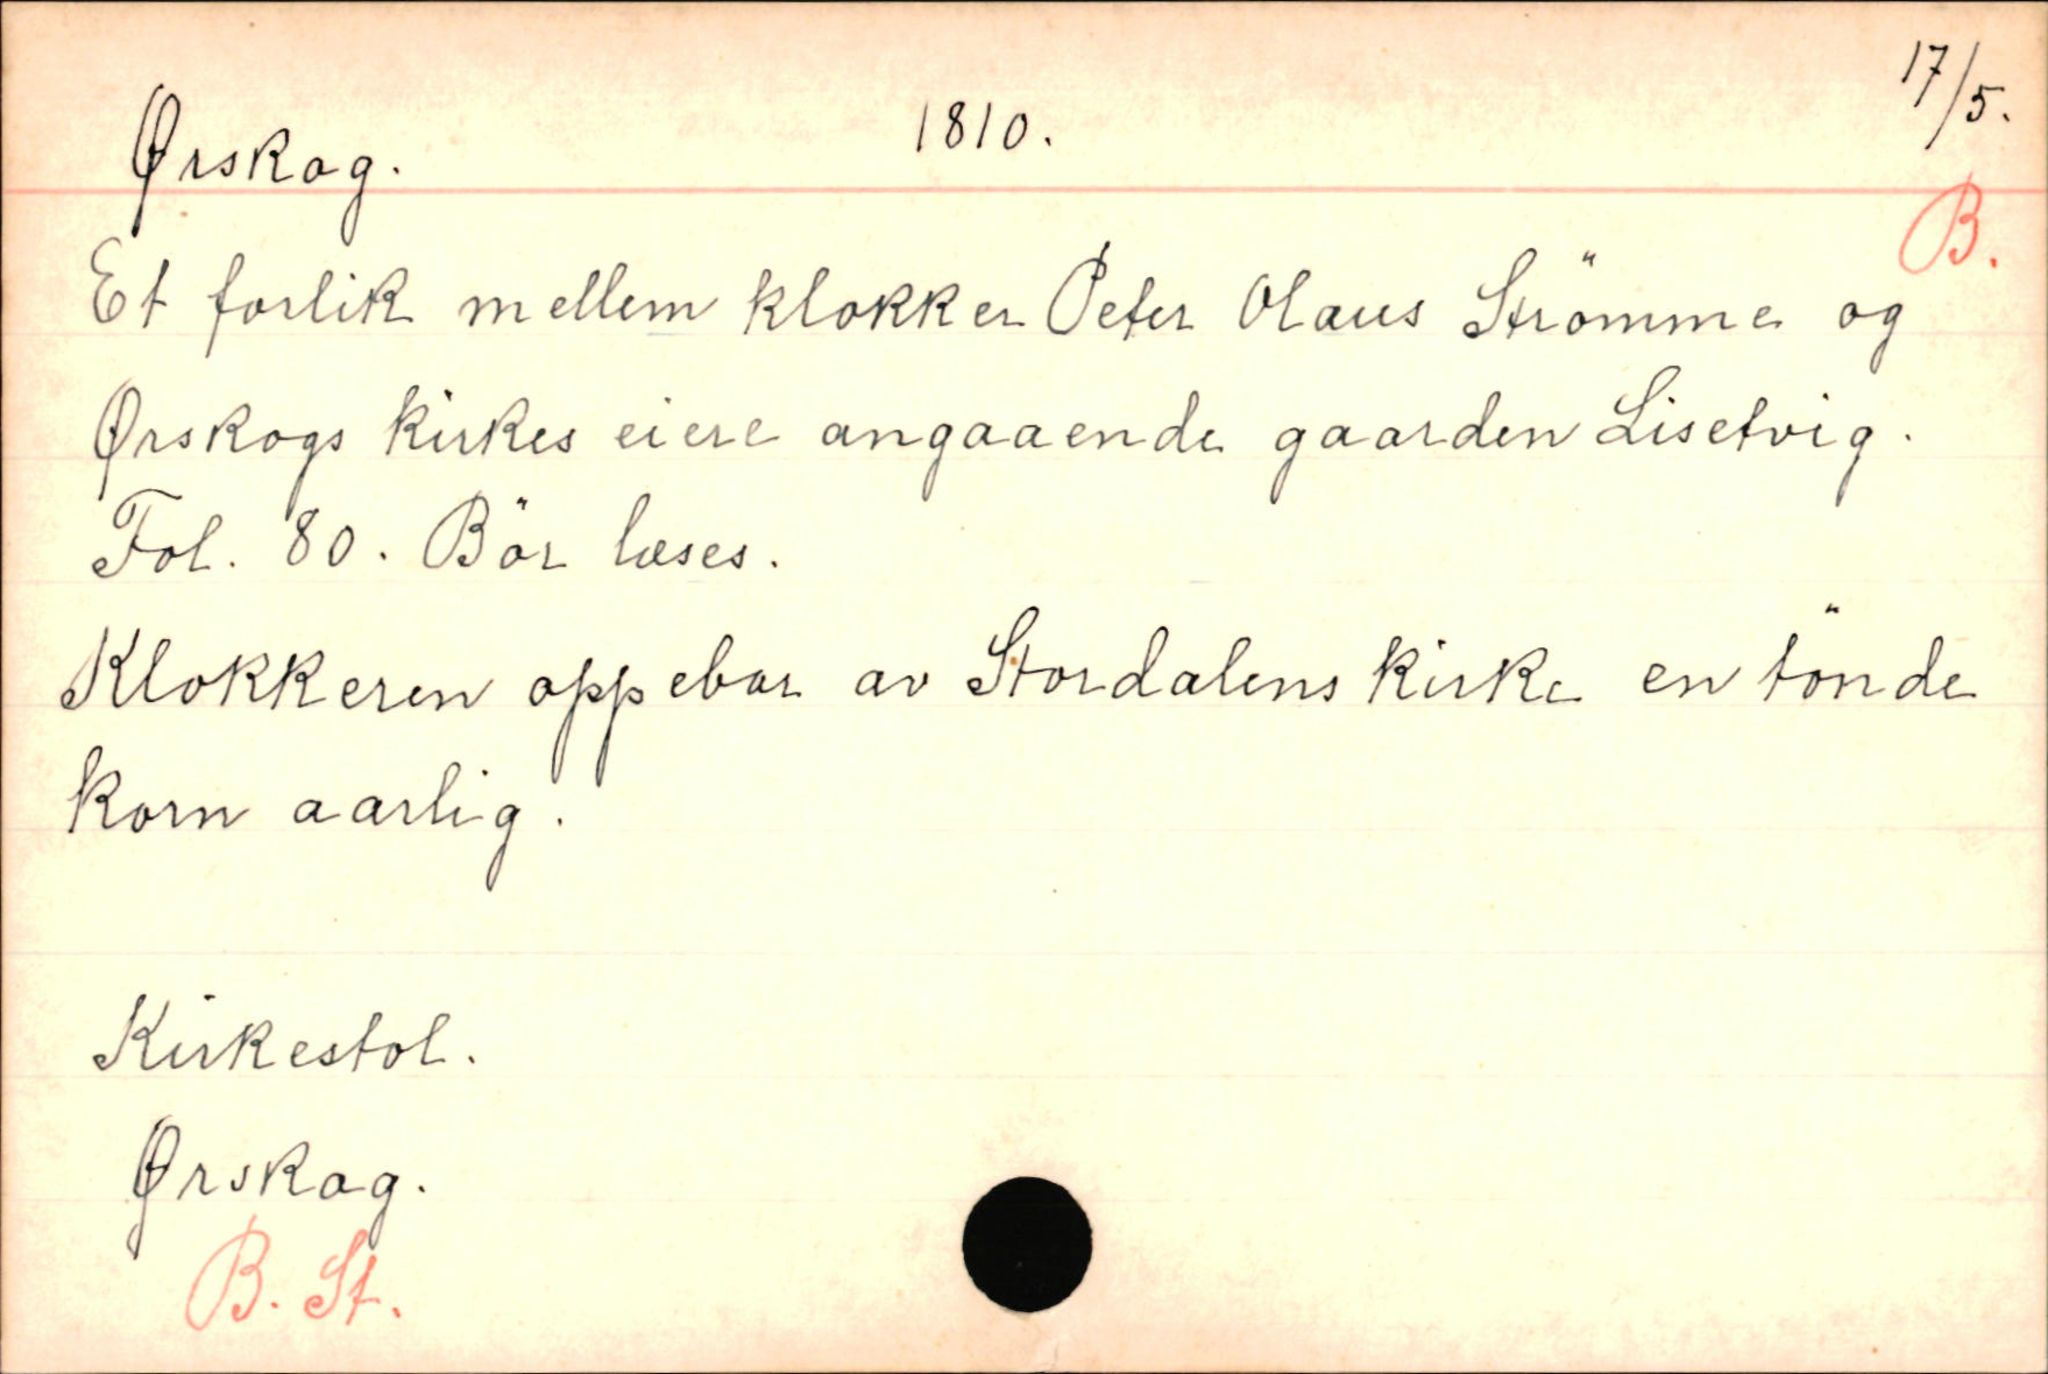 Ørskog. 1810. 17/5.
B.
Et forlik mellem klokker Peter Olaus Strömme og
Ørskogs kirkes eiere angaaende gaarden Lisetvig.
Fol. 80. Bör læses.
Klokkeren oppebar av Stordalens kirke en tönde
korn aarlig.
Kirkestol.
Ørskog.
B. St.